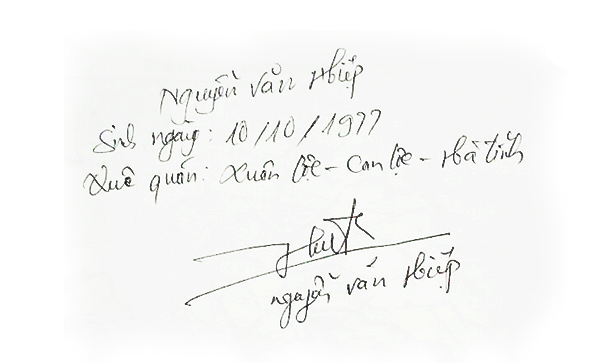 Nguyễn Văn Hiệp
Sinh ngày: 10/10/1977
Quê quán: Xuân Lộc - Can Lộc - Hà Tĩnh
Nguyễn Văn Hiệp